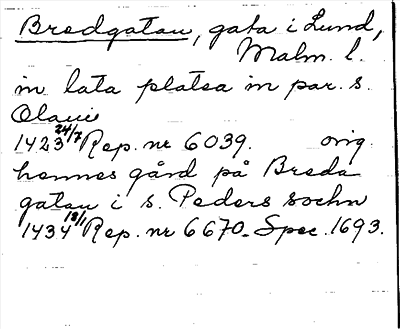 Bredgatan, gata i Lund,
Malm. l.
in lata platea in par. s.
Olaui
1423 24/7 Rep. nr 6039. orig.
hennes gård på Breda
gatan i s. Peders sochn
1434 12/1 Rep. nr 6670. Spec. 1693.